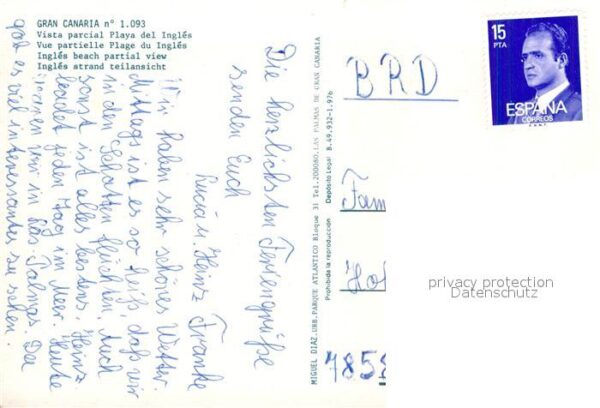 GRAN CANARIA nº 1.093
Vista parcial Playa del Inglés
Vue partielle Plage du Inglés
Inglés beach partial view
Inglés strand teilansicht
Die herzlichsten Feriengrüße
senden Euch
Lucia u. Heinz Franke
Wir haben sehr schönes Wetter.
Mittags ist es so heiß, daß wir
in den Schatten flüchten. Auch
sonst ist alles bestens. Heinz
badet jeden Tag im Meer. Heute
waren wir in Las Palmas. Da
gab es viel interessantes zu sehen.
MIGUEL DIAZ.URB.PARQUE ATLANTICO Bloque 31 Tel.200080.LAS PALMAS DE GRAN CANARIA
Prohibida la reproducción Depósito Legal B.49.932-1.976
15
PTA
ESPAÑA
CORREOS
F.N.M.T.
BRD
Fam
Hol
785
privacy protection
Datenschutz